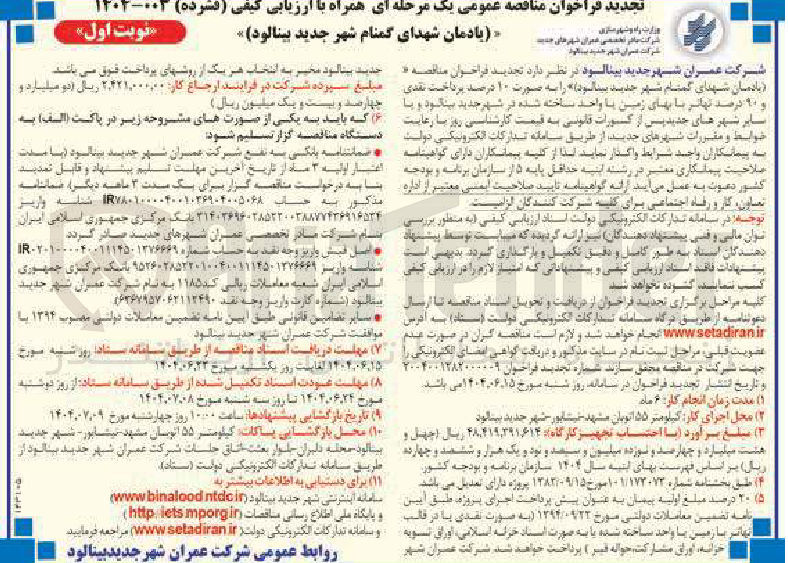 تجدید فراخوان مناقصه عمومی یک مرحله ای همراه با ارزیابی کیفی (فشرده) ۰۰۳-۱۴۰۴
« (یادمان شهدای گمنام شهر جدید بینالود)»
«نوبت اول»
وزارت راه و شهرسازی
شرکت مادر تخصصی عمران شهرهای جدید
شرکت عمران شهر جدید بینالود
شرکت عمران شهر جدید بینالود در نظر دارد تجدید فراخوان مناقصه «
(یادمان شهدای گمنام شهر جدید بینالود)» را به صورت ۱۰ درصد پرداخت نقدی
و ۹۰ درصد تهاتر با بهای زمین یا واحد ساخته شده در شهرجدید بینالود و یا
سایر شهر های جدید پس از کسورات قانونی به قیمت کارشناسی روز با رعایت
ضوابط و مقررات شهرهای جدید، از طریق سامانه تدارکات الکترونیکی دولت
به پیمانکاران واجد شرایط واگذار نماید. لذا از کلیه پیمانکاران دارای گواهینامه
صلاحیت پیمانکاری معتبر در رشته ابنیه حداقل پایه ۵ از سازمان برنامه و بودجه
کشور دعوت به عمل می آید. ارائه گواهینامه تایید صلاحیت ایمنی معتبر از اداره
تعاون، کار و رفاه اجتماعی برای کلیه شرکت کنندگان الزامیست.
توجه: در سامانه تدارکات الکترونیکی دولت اسناد ارزیابی کیفی (به منظور بررسی
توان مالی و فنی پیشنهاد دهندگان) نیز ارائه گردیده که میبایست توسط پیشنهاد
دهندگان اسناد به طور کامل و دقیق تکمیل و بارگذاری گردد. بدیهی است
پیشنهادات فاقد اسناد ارزیابی کیفی و پیشنهاداتی که امتیاز لازم را در ارزیابی کیفی
کسب ننمایند گشوده نخواهد شد.
کلیه مراحل برگزاری تجدید فراخوان از دریافت و تحویل اسناد مناقصه تا ارسال
دعوتنامه از طریق درگاه سامانه تدارکات الکترونیکی دولت (ستاد) به آدرس
www.setadiran.ir انجام خواهد شد و لازم است مناقصه گران در صورت عدم
عضویت قبلی، مراحل ثبت نام در سایت مذکور و دریافت گواهی امضای الکترونیکی را
جهت شرکت در مناقصه محقق سازند. شماره تجدید فراخوان ۲۰۰۴۰۰۱۲۸۲۰۰۰۰۰۹
و تاریخ انتشار تجدید فراخوان در سامانه، روز شنبه مورخ ۱۴۰۴.۰۶.۱۵ می باشد.
۱) مدت زمان انجام کار: ۶ ماه.
۲) محل اجرای کار: کیلومتر ۵۵ اتوبان مشهد-نیشابور-شهر جدید بینالود
۳) مبلغ برآورد (با احتساب تجهیز کارگاه): ۴۸.۴۱۹.۳۹۱.۶۱۴ ریال (چهل و
هشت میلیارد و چهارصد و نوزده میلیون و سیصد و نود و یک هزار و ششصد و چهارده
ریال) بر اساس فهرست بهای ابنیه سال ۱۴۰۴ سازمان برنامه و بودجه کشور.
۴) طبق بخشنامه شماره ۱۰۱/۱۷۳۰۷۳ مورخ ۱۳۸۲/۰۹/۱۵ پروژه دارای تعدیل می باشد.
۵) ۲۰ درصد مبلغ اولیه پیمان به عنوان پیش پرداخت اجرای پروژه، طبق آیین
نامه تضمین معاملات دولتی مورخ ۱۳۹۴/۰۹/۲۲ (به صورت نقدی یا در قالب
تهاتر با زمین یا واحد ساخته شده یا به صورت اسناد خزانه اسلامی، اوراق تسویه
خزانه، اوراق مشارکت، حواله قیر) پرداخت خواهد شد. شرکت عمران شهر
جدید بینالود مخیر به انتخاب هر یک از روشهای پرداخت فوق می باشد.
مبلغ سپرده شرکت در فرایند ارجاع کار: ۲.۴۲۱.۰۰۰.۰۰۰ ریال (دو میلیارد و
چهارصد و بیست و یک میلیون ریال)
۶) که باید به یکی از صورت های مشروحه زیر در پاکت (الف) به
دستگاه مناقصه گزار تسلیم شود:
● ضمانتنامه بانکی به نفع شرکت عمران شهر جدید بینالود (با مدت
اعتبار اولیه ۳ ماه از تاریخ آخرین مهلت تسلیم پیشنهاد و قابل تمدید
بنا به درخواست مناقصه گزار برای یک مدت ۳ ماهه دیگر). ضمانتنامه
بانک مرکزی جمهوری اسلامی ایران
بنام شرکت مادر تخصصی عمران شهرهای جدید صادر گردد.
● اصل فیش واریز وجه نقد به حساب شماره
اسلامی ایران شعبه معاملات ریالی کد ۱۱۸۵ به نام شرکت عمران شهر جدید
● سایر تضامین قانونی طبق آیین نامه تضمین معاملات دولتی مصوب ۱۳۹۴ با
موافقت شرکت عمران شهر جدید بینالود
۷) مهلت دریافت اسناد مناقصه از طریق سامانه ستاد: روز شنبه مورخ
۱۴۰۴.۰۶.۱۵ لغایت روز یکشنبه مورخ ۱۴۰۴.۰۶.۲۳
۸) مهلت عودت اسناد تکمیل شده از طریق سامانه ستاد: از روز دوشنبه
مورخ ۱۴۰۴.۰۶.۲۴ تا روز سه شنبه مورخ ۱۴۰۴.۰۷.۰۸
۹) تاریخ بازگشایی پیشنهادها: ساعت ۱۰:۰۰ روز چهارشنبه مورخ ۱۴۰۴.۰۷.۰۹
۱۰) محل بازگشایی پاکات: کیلومتر ۵۵ اتوبان مشهد-نیشابور- شهر جدید
بینالود-محله دلیران-بلوار بعثت-اتاق جلسات شرکت عمران شهر جدید بینالود از
طریق سامانه تدارکات الکترونیکی دولت (ستاد).
۱۱) برای دستیابی به اطلاعات بیشتر به
سامانه اینترنتی شهر جدید بینالود (www.binalood.ntdc.ir)
و پایگاه ملی اطلاع رسانی مناقصات (http://iets.mporg.ir)
و سامانه تدارکات الکترونیکی دولت (www.setadiran.ir) مراجعه فرمایید.
روابط عمومی شرکت عمران شهر جدید بینالود